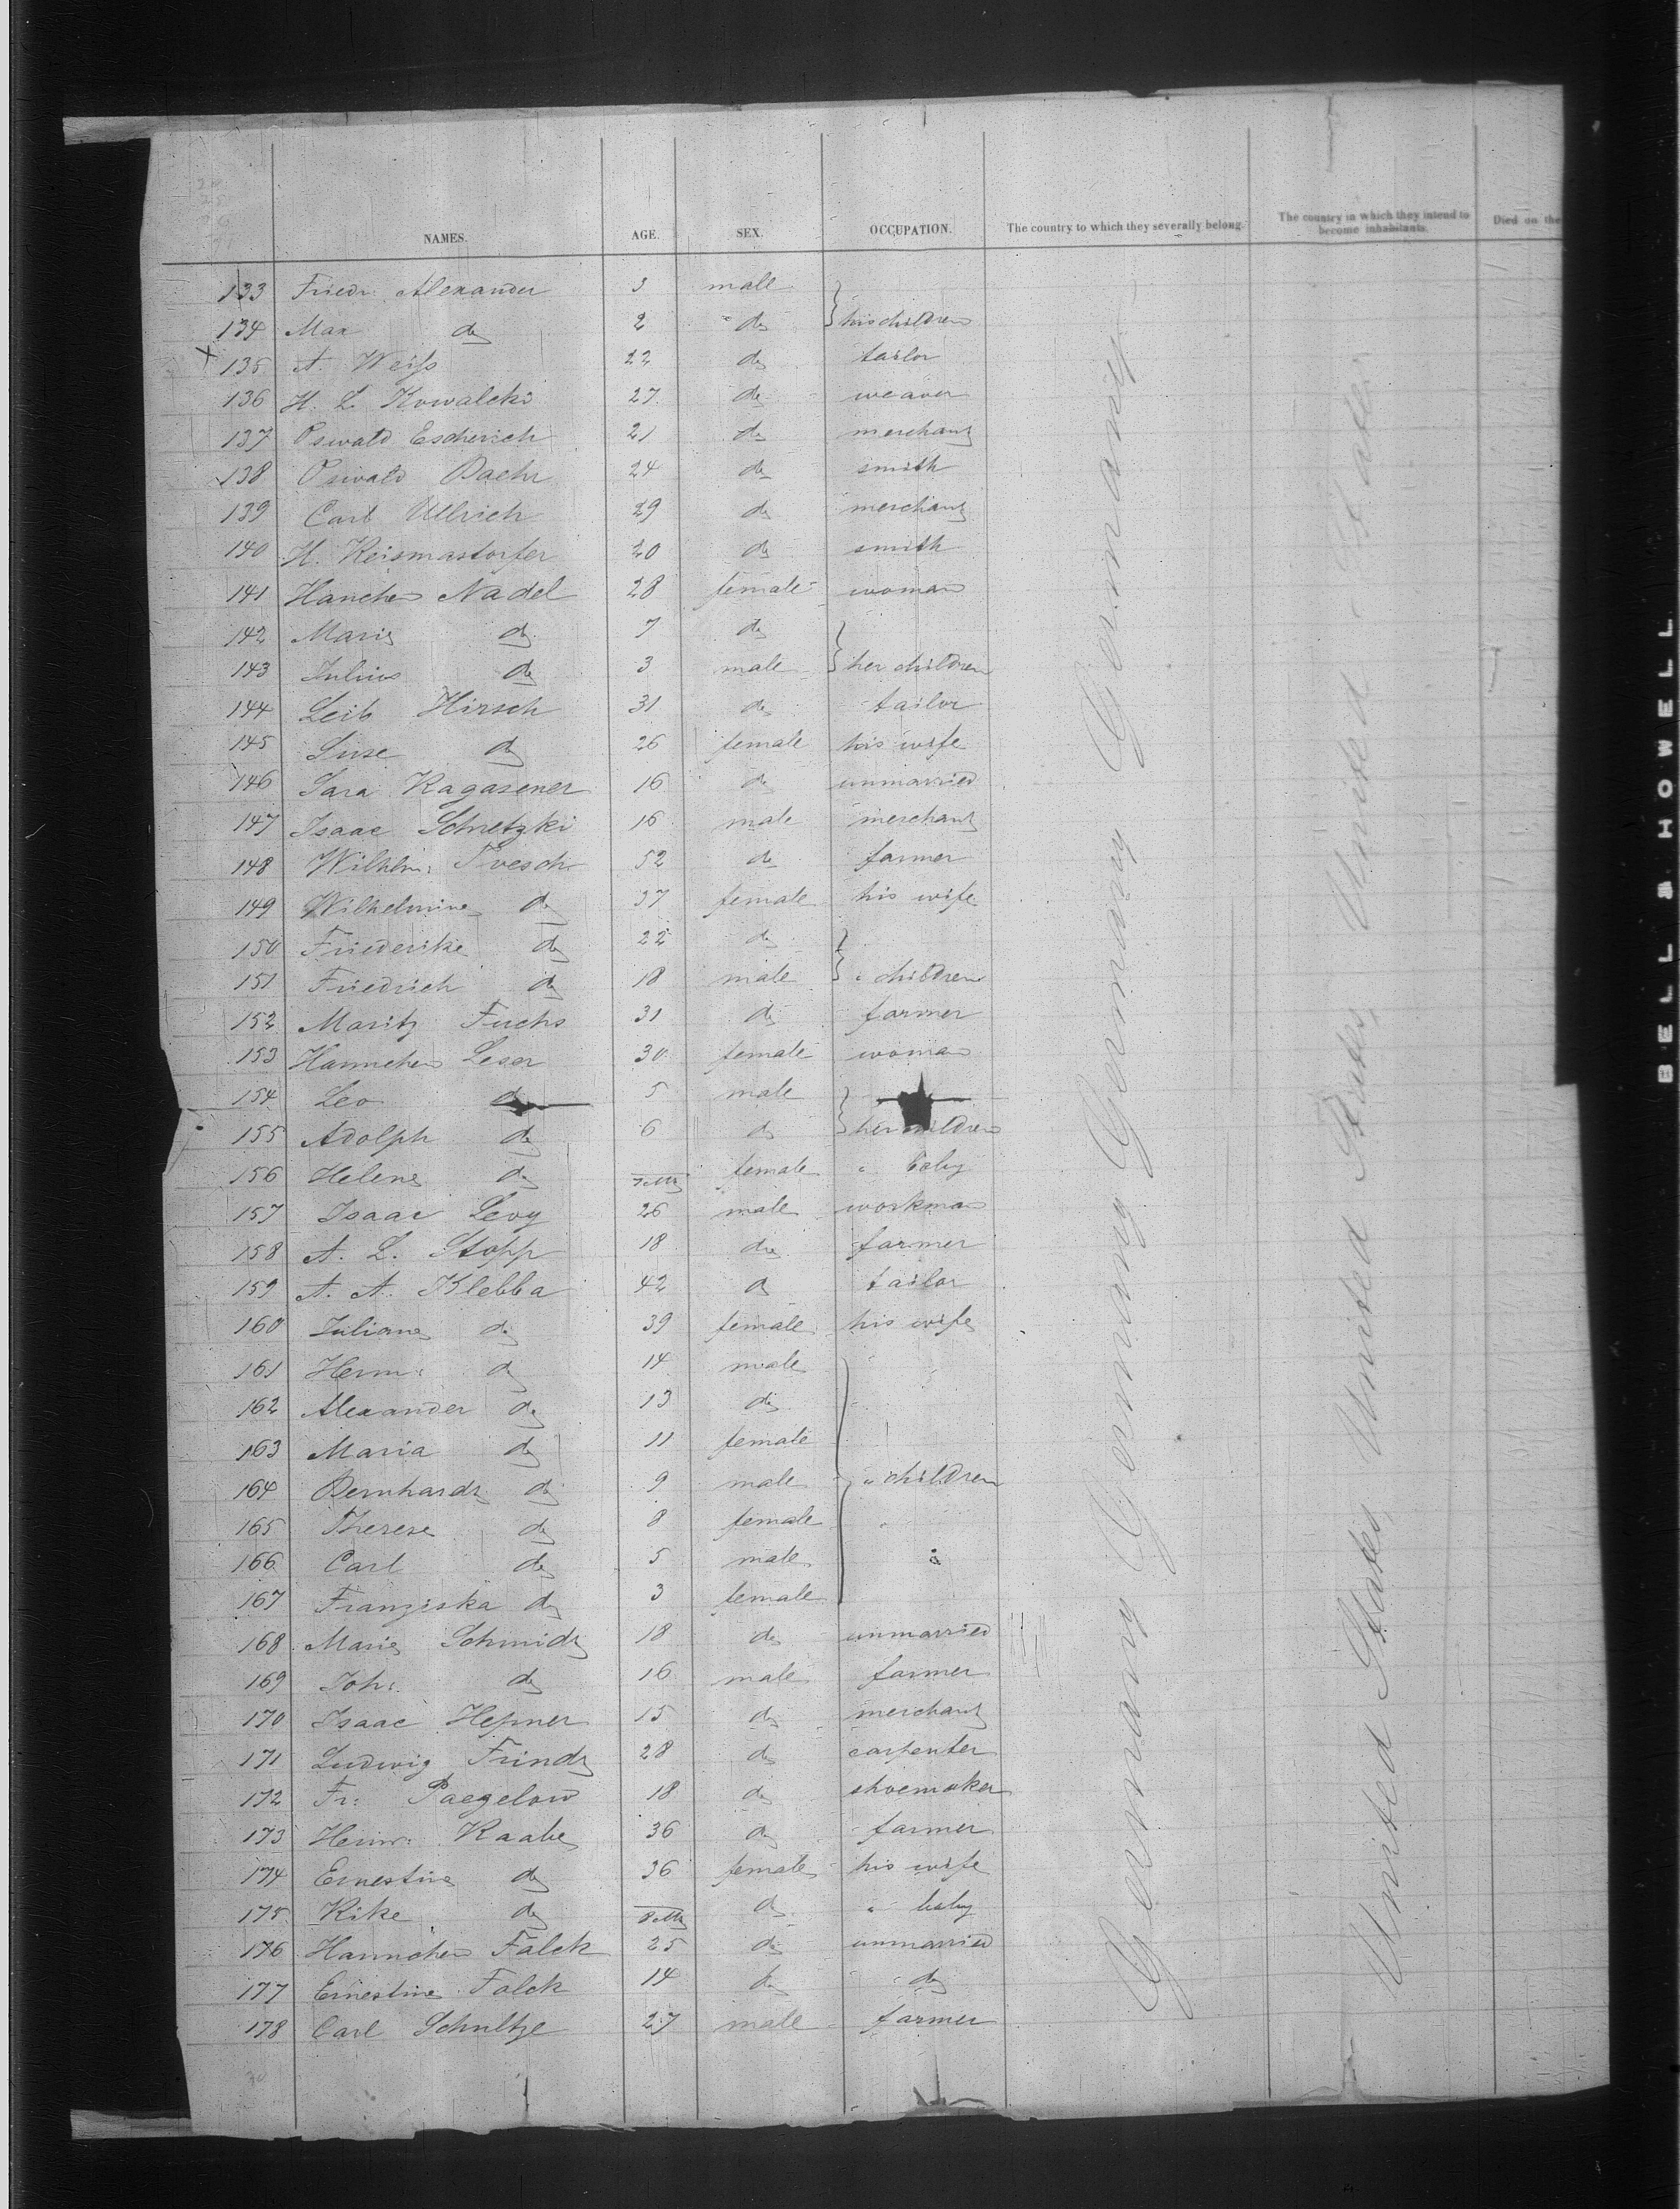 NAMES. AGE. SEX. OCCUPATION. The country to which they severally belong. The country in which they intend to become inhabitants. Died on the
133 Friedr. Alexander 3 male
134 Max do 2 do his children
135 A. Weifs 22 do tailor
136 H. L. Kowalcki 27 do weaver
137 Oswald Escherich 21 do merchant
138 Oswald Baehr 24 do smith
139 Carl Ullrich 29 do merchant
140 H. Reismastorfer 20 do smith
141 Hanchen Nadel 28 female woman
142 Marie do 7 do
143 Julius do 3 male her children
144 Leib Hirsch 31 do tailor
145 Suse do 26 female his wife
146 Sara Ragasener 16 do unmarried
147 Isaac Schnetzki 16 male merchant
148 Wilhlm: Tresch 52 do farmer
149 Wilhelmine do 37 female his wife
150 Friederike do 22 do
151 Friedrich do 18 male " children
152 Moritz Fuchs 31 do farmer
153 Hannchen Leser 30 female woman
154 Leo do 5 male
155 Adolph do 6 do her children
156 Helene do female " baby
157 Isaac Levy 26 male workman
158 A. L. Stopp 18 do farmer
159 A. A. Klebba 42 do tailor
160 Juliane do 39 female his wife
161 Herm: do 14 male
162 Alexander do 13 do
163 Maria do 11 female
164 Bernhardt do 9 male " children
165 Therese do 8 female
166 Carl do 5 male
167 Franziska do 3 female
168 Marie Schmidt 18 do unmarried
169 Joh: do 16 male farmer
170 Isaac Hepner 15 do merchant
171 Ludwig Frindt 28 do carpenter
172 Fr: Paegelow 18 do shoemaker
173 Heinr: Raabe 36 do farmer
174 Ernestine do 36 female his wife
175 Rike do do " baby
176 Hannchen Falck 25 do unmarried
177 Ernestine Falck 14 do do
178 Carl Schultze 27 male farmer
Germany Germany Germany Germany
United States, United States, United States
BELL & HOWELL